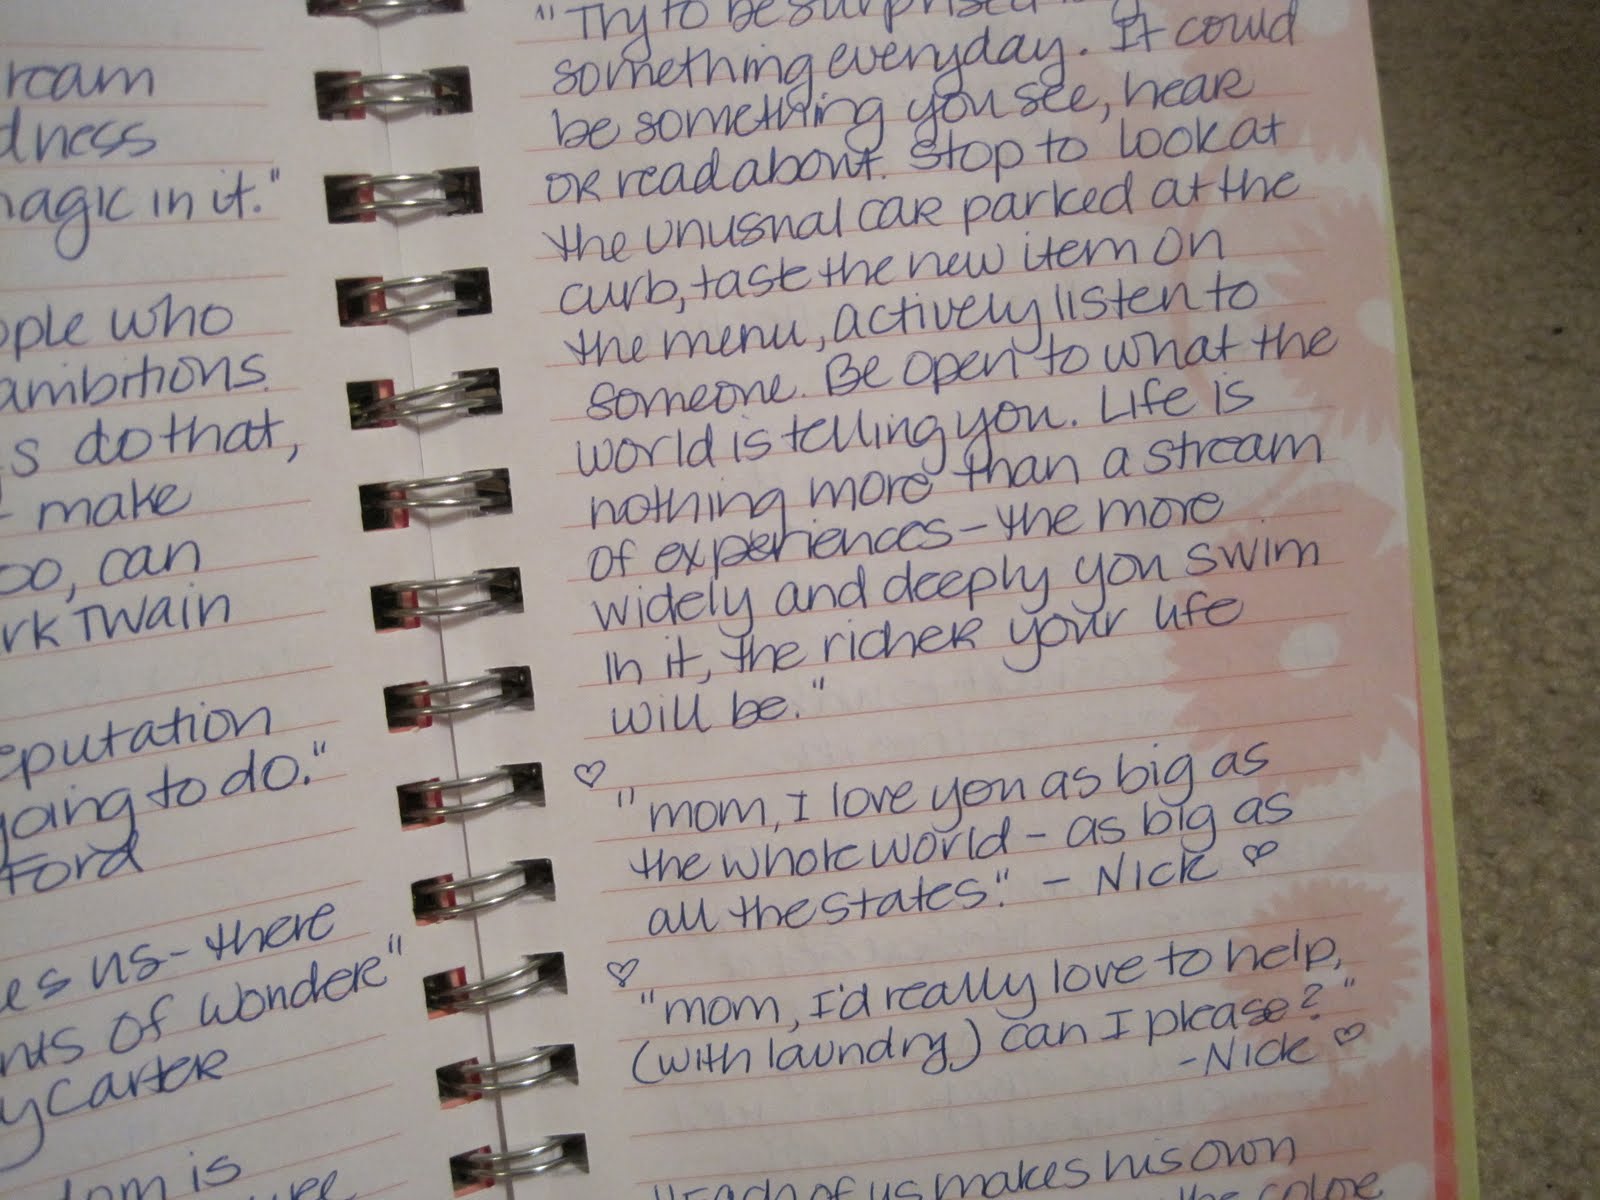 ream
dness
magic in it."
ople who
ambitions.
s do that,
make
oo, can
rk Twain
eputation
going to do."
Ford
es us - there
nts of wonder"
y Carter
dom is
"Try to be surprised
something everyday. It could
be something you see, hear
or read about. Stop to look at
the unusual car parked at the
curb, taste the new item on
the menu, actively listen to
someone. Be open to what the
world is telling you. Life is
nothing more than a stream
of experiences - the more
widely and deeply you swim
in it, the richer your life
will be."
♡ "mom, I love you as big as
the whole world - as big as
all the states." - Nick ♡
♡ "mom, I'd really love to help,
(with laundry) can I please?"
- Nick ♡
"Each of us makes his own
the color